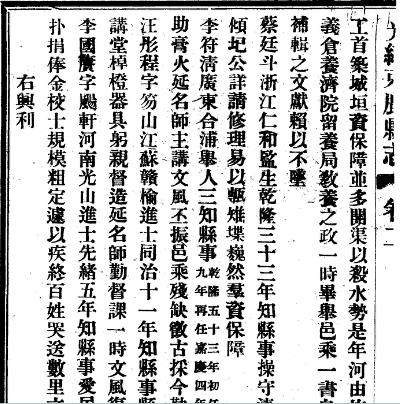 光緒束鹿縣志 卷二
工首築城垣資保障並多開渠以殺水勢是年河由
義倉養濟院留養局教養之政一時畢舉邑乘一書
補輯之文獻賴以不墜
蔡廷斗浙江仁和監生乾隆三十三年知縣事操守清
傾圮公詳請修理易以甎雉堞巍然羣資保障
李符清廣東合浦舉人三知縣事乾隆五十三年初任九年再任嘉慶四年
助膏火延名師主講文風丕振邑乘殘缺徵古採今勒
汪彤程字笏山江蘇贛榆進士同治十一年知縣事縣
講堂棹橙器具躬親督造延名師勤督課一時文風復
李國賡字颺軒河南光山進士先緒五年知縣事愛民
扑捐俸金校士規模粗定遽以疾終百姓哭送數里
右興利